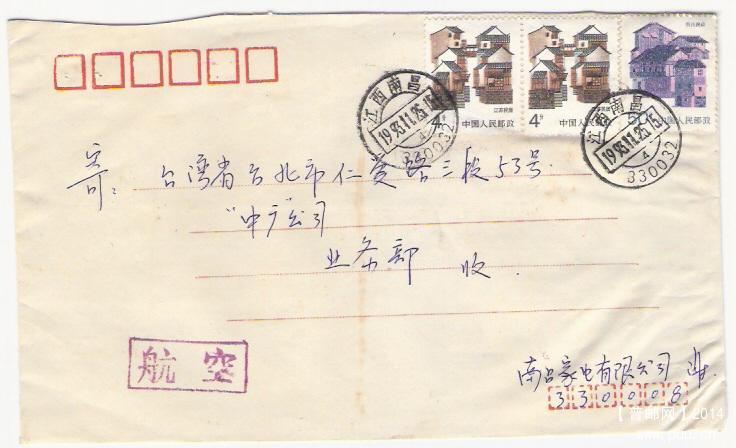 江苏民居
江苏民居
4分
4分
50分
中国人民邮政
中国人民邮政
中国人民邮政
江西南昌
1993.11.25.15
4
330032
江西南昌
1993.11.25.15
4
330032
寄：台湾省台北市仁爱路三段53号
"中广"公司
业务部 收.
航空
南昌家电有限公司
330008
【普邮网】2014